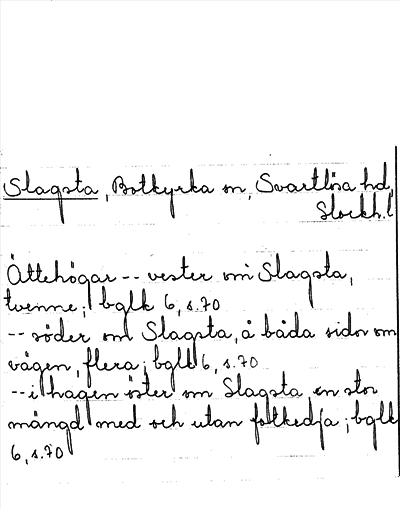 Slagsta, Botkyrka sn, Svartlösa hd,
Stockh.l
Ättehögar -- vester om Slagsta,
tvenne; bglk 6, s.70
-- söder om Slagsta, å båda sidor om
vägen, flera; bglk 6, s.70
-- i hagen öster om Slagsta en stor
mängd med och utan fotkedja; bglk
6, s.70